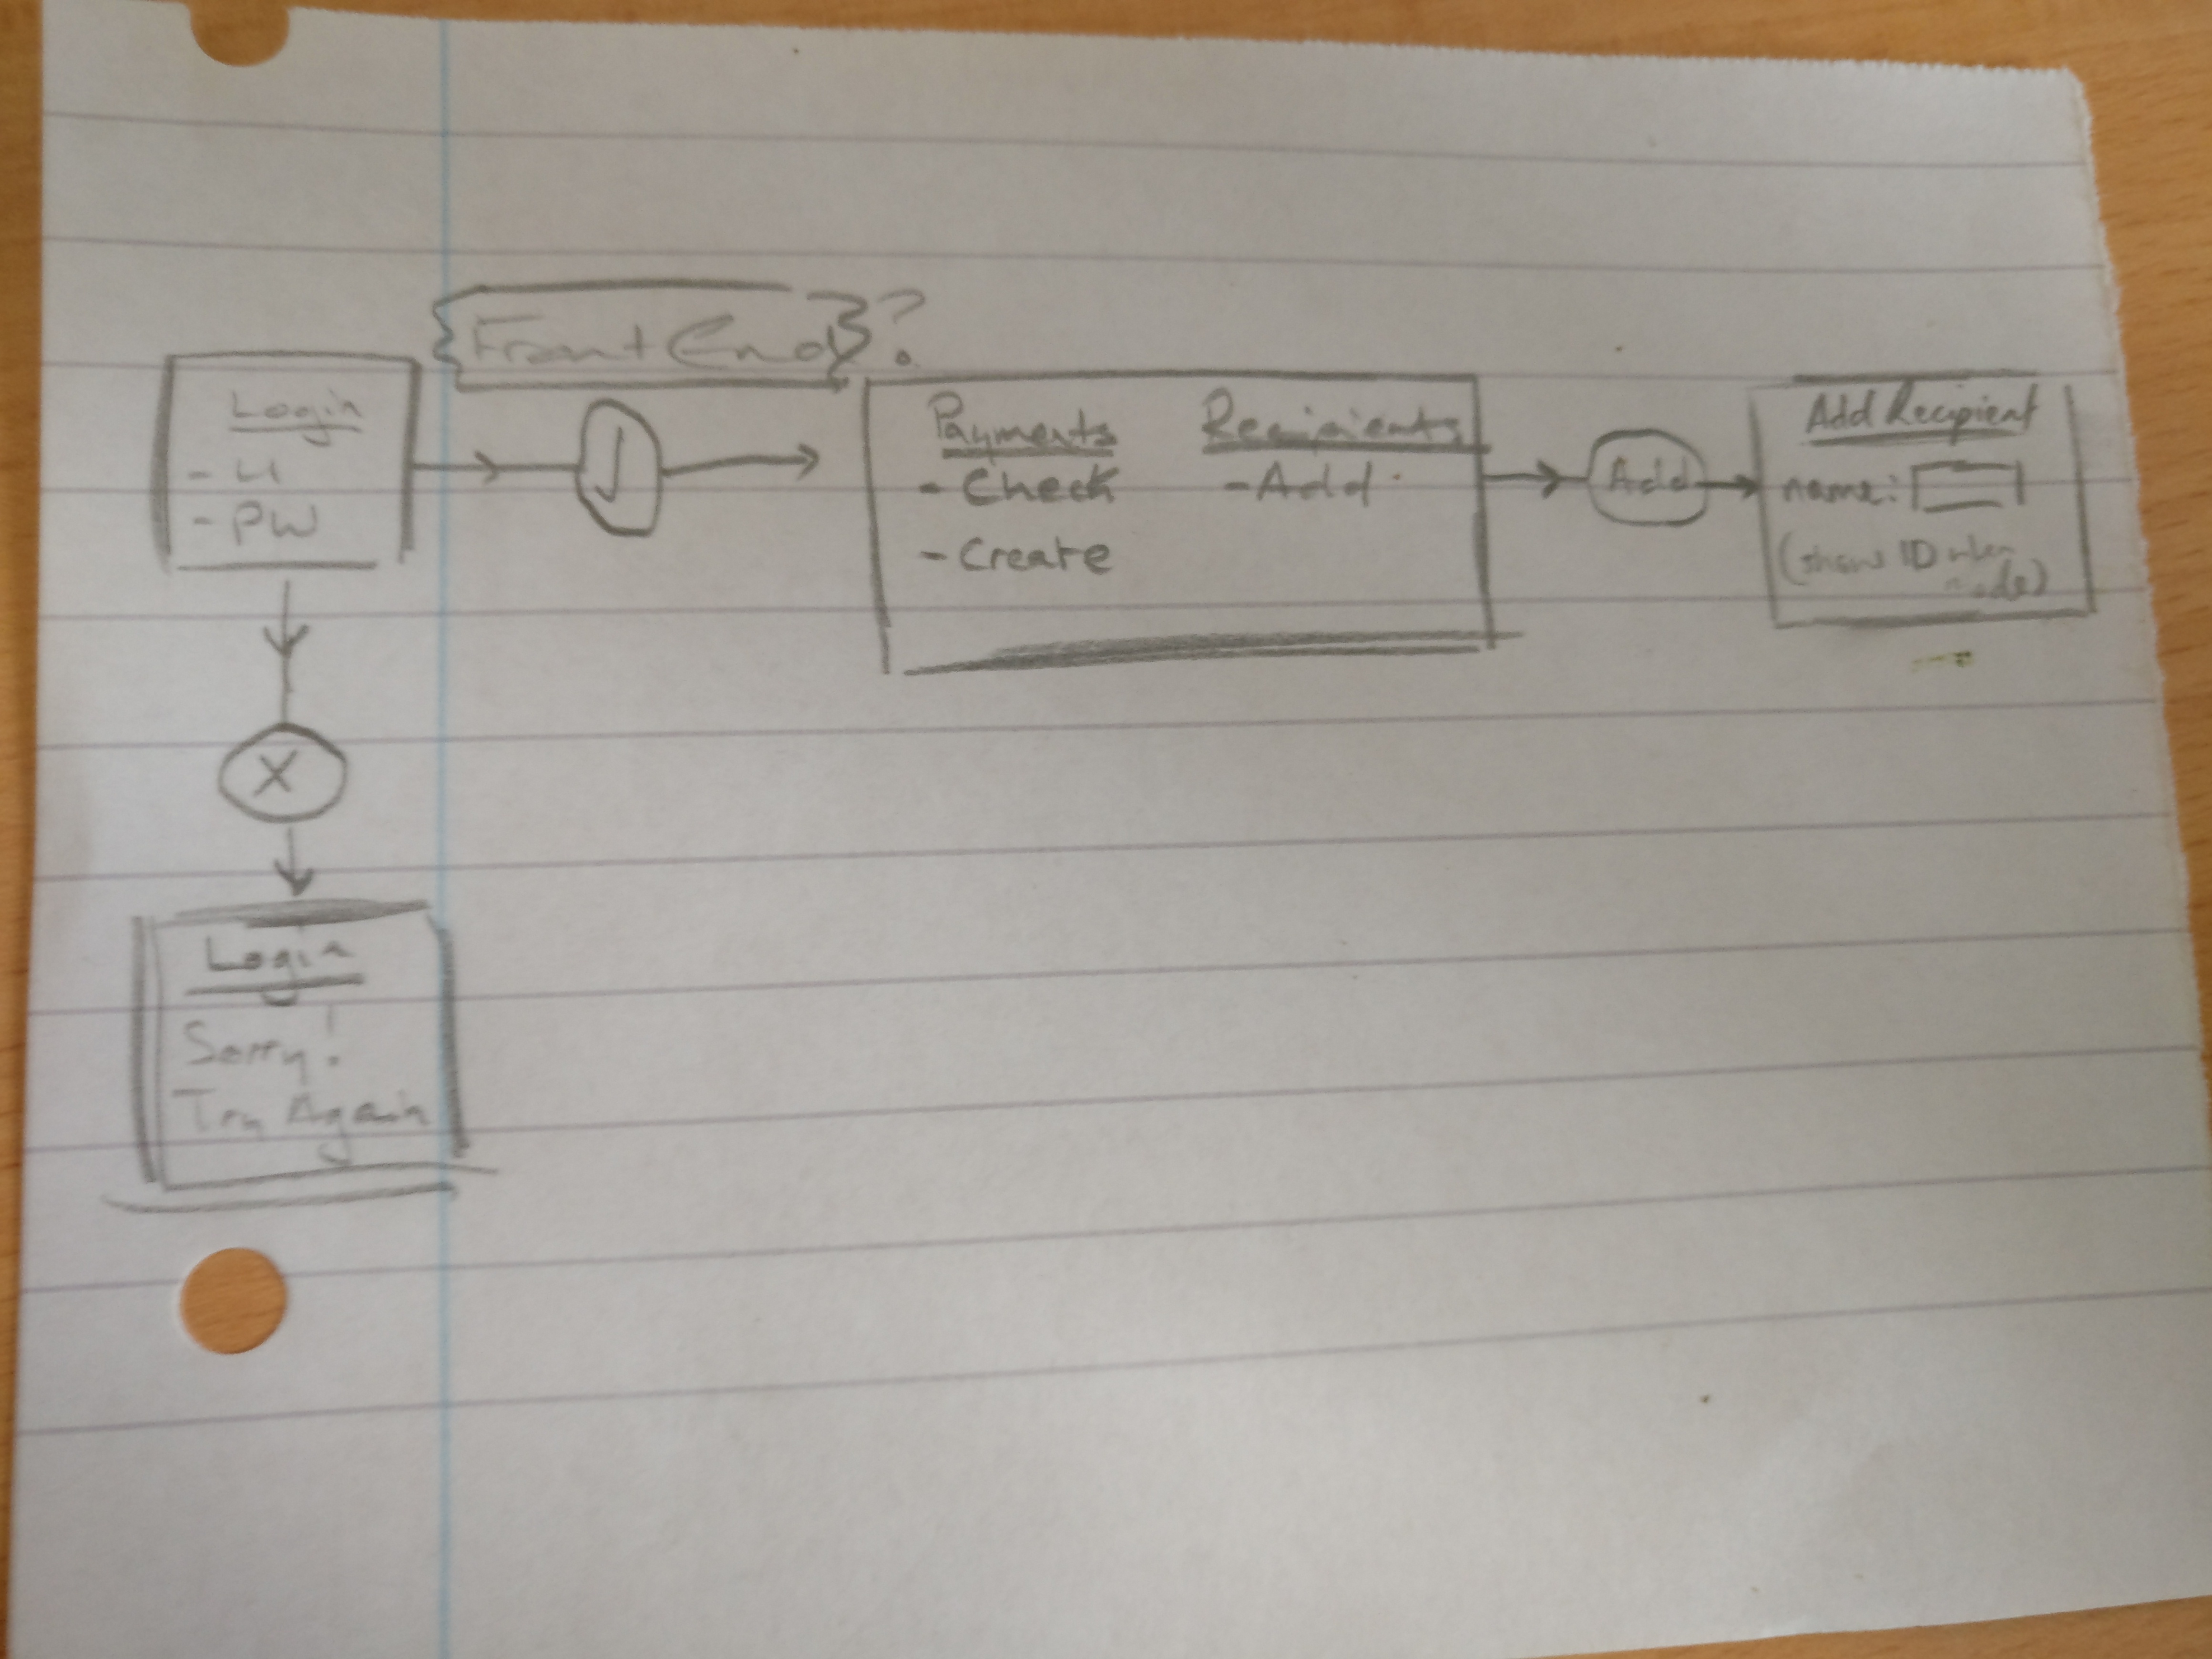 {Front End}?
Login
- U
- PW
✓
Payments
- Check
- Create
Recipients
- Add
Add
Add Recipient
name:
(show ID when made)
X
Login
Sorry!
Try Again